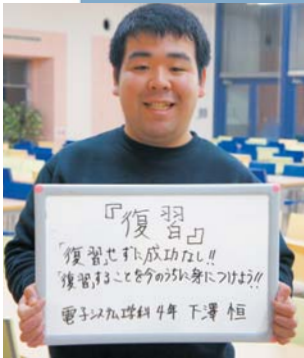 『復習』
「復習せずに成功なし!!
「復習」することを今のうちに身につけよう!!
電子システム工学科 4年 下澤 恒